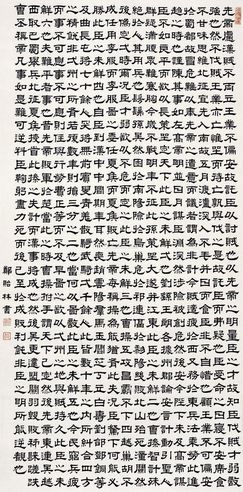 先帝慮漢賊不兩立王業不偏安故託臣以討賊也以先帝之明量臣之才故知臣伐賊才弱敵
強也然不伐賊王業亦亡惟坐而待亡孰與伐之是故託臣而弗疑也臣受命之日寢不安席食
不甘味思惟北征宜先入南故五月渡瀘深入不毛并日而食臣非不自惜也顧王業不可偏安
於蜀都故冒危難以奉先帝之遺意也而議者謂為非計今賊適疲於西又務於東兵法乘勞此進
趨之時也謹陳其事如左高帝明並日月謀臣淵深然涉險被創危然後安今陛下未及高帝謀臣
不如良平而欲以長策取勝坐定天下此臣之未解一也劉繇王朗各據州郡論安言計動引聖人
群疑滿腹眾難塞胸今歲不戰明年不征使孫策坐大遂并江東此臣之未解二也曹操智計殊
絕於人其用兵也仿佛孫吳然困於南陽險於烏巢危於祁連偪於黎陽幾敗北山殆死潼關然
後偽定一時耳況臣才弱而欲以不危而定之此臣之未解三也曹操五攻昌霸不下四越巢湖不
成任用李服而李服圖之委任夏侯而夏侯敗亡先帝每稱操為能猶有此失況臣駑下何能必
勝此臣之未解四也自臣到漢中中間朞年耳然喪趙雲陽群馬玉閻芝丁立白壽劉郃鄧銅等
曲長屯將七十餘人突將無前賨叟青羌散騎武騎一千餘人此皆數十年之內所糾合四方之
精銳非一州之所有若復數年則損三分之二也當何以圖敵此臣之未解五也今民窮兵疲而
事不可息事不可息則住與行勞費正等而不及今圖之欲以一州之地與賊持久此臣之未解
六也夫難平者事也昔先帝敗軍於楚當此時曹操拊手謂天下已定然後先帝東連吳越
西取巴蜀舉兵北征夏侯授首此操之失計而漢事將成也然後吳更違盟關羽毀敗秭歸蹉跌
曹丕稱帝凡事如是難可逆見臣鞠躬盡力死而後已至於成敗利鈍非臣之明所能逆覩也
鄭貽林書